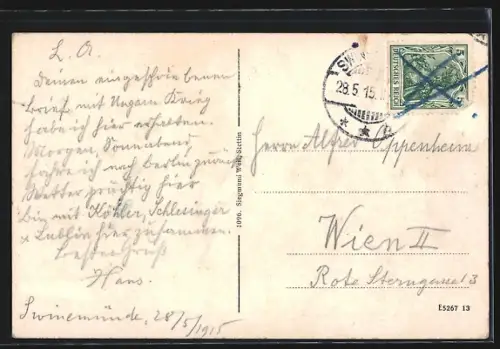 L. A.
Deinen eingeschriebenen
Brief mit Ungarn Krieg
habe ich hier erhalten.
Morgen, Sonnabend
fahre ich nach Berlin zurück
Wetter prächtig hier
bin mit Köhler, Schlesinger
& Lubbin hier zusammen.
Besten Gruß
Hans.
Swinemünde, 28/5/1915
1096. Siegmund Weil, Stettin
SW
28.5.15.
DEUTSCHES REICH
5
Herrn Alfred Oppenheim
Wien II
Rote Sterngasse 3
E5267 13